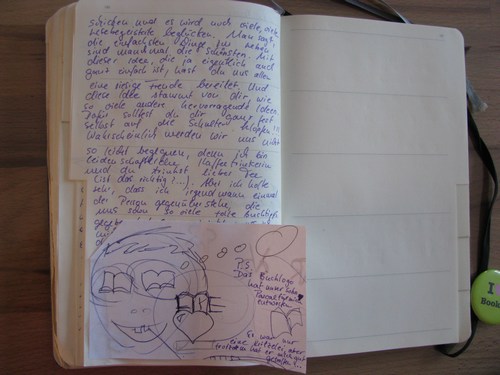 schicken und es wird noch viele, viele
Lesebegeisterte beglücken. Man sagt,
die einfachsten Dinge im Leben
sind manchmal die schönsten. Mit
dieser Idee, die ja eigentlich auch
ganz einfach ist, hast du uns allen
eine riesige Freude bereitet. Und
diese Idee stammt von dir wie
so viele andere hervorragende Ideen.
Dafür solltest du dir ganz fest
selbst auf die Schulter klopfen!!!
Wahrscheinlich werden wir uns nicht
so leicht begegnen, denn ich bin
leidenschaftliche Kaffeetrinkerin
und du trinkst lieber Tee
(ist das richtig?...). Aber ich hoffe
sehr, dass ich irgendwann einmal
der Person gegenüberstehe, die
uns schon so viele tolle Buchtipps
P.S.
Das Buchlogo
hat unser
entworfen
Es war nur
eine Kritzelei, aber
trotzdem hat er mich gut
I
Book